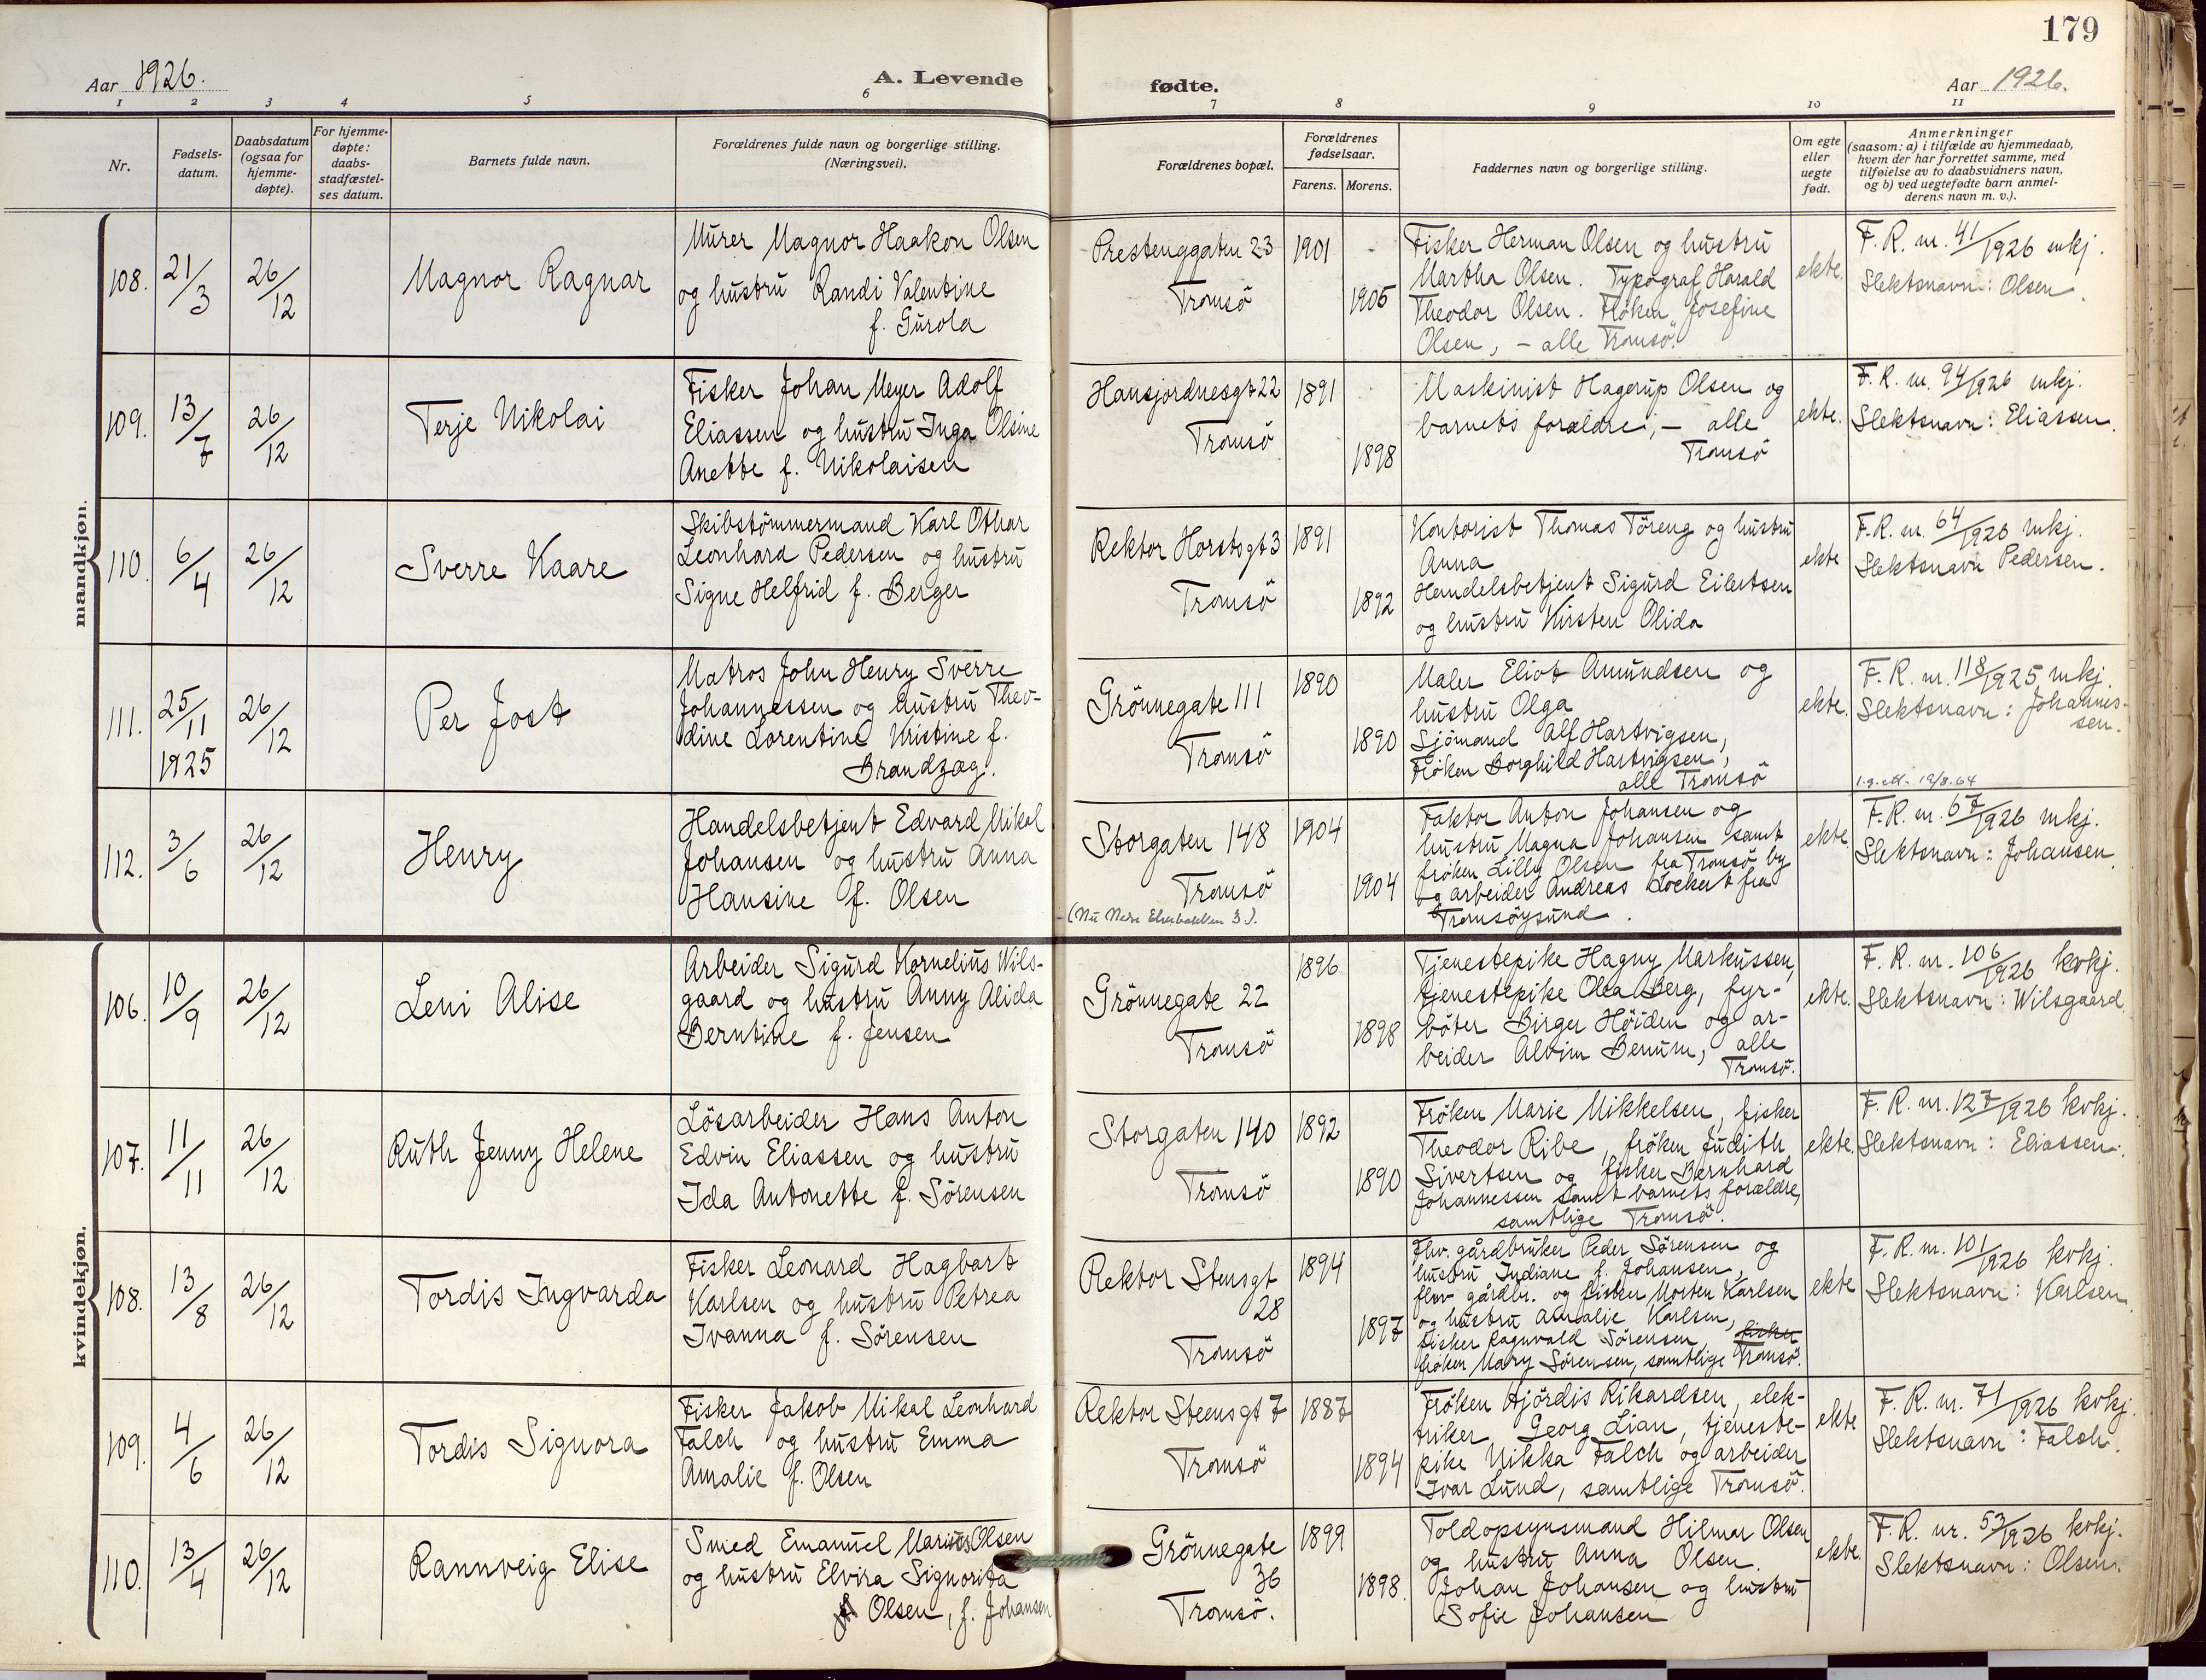 179
Aar 1926.
A. Levende
fødte.
Aar 1926.
1 2 3 4 5 6 7 8 9 10 11
Nr.
Fødsels-
datum.
Daabsdatum
(ogsaa for
hjemme-
døpte).
For hjemme-
døpte:
daabs-
stadfæstel-
ses datum.
Barnets fulde navn.
Forældrenes fulde navn og borgerlige stilling.
(Næringsvei).
Forældrenes bopæl.
Forældrenes
fødselsaar.
Farens. Morens.
Faddernes navn og borgerlige stilling.
Om egte
eller
uegte
født.
Anmerkninger
(saasom: a) i tilfælde av hjemmedaab,
hvem der har forrettet samme, med
tilføielse av to daabsvidners navn,
og b) ved uegtefødte barn anmel-
derens navn m. v.).
mandkjøn.
108.
21/3
26/12
Magnor Ragnar
Murer Magnor Haakon Olsen
og hustru Randi Valentine
f. Gurola
Prestenggaten 23
Tromsö
1901
1905
Fisker Herman Olsen og hustru
Martha Olsen. Typograf Harald
Theodor Olsen. Fröken Josefine
Olsen, – alle Tromsö.
ekte.
F. R. nr. 41/1926 mkj.
Slektsnavn: Olsen.
109.
13/7
26/12
Terje Nikolai
Fisker Johan Meyer Adolf
Eliassen og hustru Inga Olsine
Anette f. Nikolaisen
Hansjordnesgt 22
Tromsö
1891
1898
Maskinist Hagerup Olsen og
barnets forældre, – alle
Tromsö
ekte.
F. R. nr. 94/1926 mkj.
Slektsnavn: Eliassen.
110.
6/4
26/12
Sverre Kaare
Skibstömmermand Karl Othar
Leonhard Pedersen og hustru
Signe Helfrid f. Berger
Rektor Horstsgt 3
Tromsö
1891
1892
Kontorist Thomas Töreng og hustru
Anna
Handelsbetjent Sigurd Eilertsen
og hustru Kirsten Olida
ekte
F. R. nr. 64/1926 mkj.
Slektsnavn Pedersen.
111.
25/11
1925
26/12
Per Jost
Matros John Henry Sverre
Johannessen og hustru Theo-
dine Lorentine Kristine f.
Brandzæg.
Grönnegate 111
Tromsö
1890
1890
Maler Eliot Amundsen og
hustru Olga
Sjömand Alf Hartvigsen,
Fröken Borghild Hartvigsen,
alle Tromsö
ekte.
F. R. nr. 118/1925 mkj.
Slektsnavn: Johannes-
sen.
112.
3/6
26/12
Henry
Handelsbetjent Edvard Mikal
Johansen og hustru Anna
Hansine f. Olsen
Storgaten 148
Tromsö
1904
1904
Faktor Anton Johansen og
hustru Magna Johansen samt
fröken Lilly Olsen fra Tromsö by
og arbeider Andreas Lockert fra
Tromsöysund.
ekte.
F. R. nr. 67/1926 mkj.
Slektsnavn: Johansen.
kvindekjøn.
106.
10/9
26/12
Leni Alise
Arbeider Sigurd Kornelius Wils-
gaard og hustru Anny Alida
Berntine f. Jensen
Grönnegate 22
Tromsö
1896
1898
Tjenestepike Hagny Markussen,
tjenestepike Olea Berg, fyr-
böter Birger Höiden og ar-
beider Alvim Benum, alle
Tromsö.
ekte.
F. R. nr. 106/1926 kvkj.
Slektsnavn: Wilsgaard
107.
11/11
26/12
Ruth Jenny Helene
Lösarbeider Hans Anton
Edvin Eliassen og hustru
Ida Antonette f. Sörensen
Storgaten 140
Tromsö
1892
1890
Fröken Marie Mikkelsen, fisker
Theodor Ribe, fröken Judith
Sivertsen og fisker Bernhard
Johannessen samt barnets forældre,
samtlige Tromsö.
ekte.
F. R. nr. 127/1926 kvkj.
Slektsnavn: Eliassen.
108.
13/8
26/12
Tordis Ingvarda
Fisker Leonard Hagbart
Karlsen og hustru Petrea
Ivanna f. Sörensen
Rektor Stensgt
28
Tromsö
1894
1897
Fhv. gårdbruker Peder Sørensen og
hustru Indiane f. Johansen,
fhv gårdbr. og fisker Morten Karlsen
og hustru Amalie Karlsen,
fisker Ragnvald Sörensen, fisker
fröken Mary Sörensen, samtlige Tromsö.
ekte
F. R. nr. 101/1926 kvkj.
Slektsnavn: Karlsen.
109.
4/6
26/12
Tordis Signora
Fisker Jakob Mikal Leonhard
Falch og hustru Emma
Amalie f. Olsen
Rektor Steensgt 7
Tromsö
1887
1894
Fröken Hjördis Rikardsen, elek-
triker Georg Lian, tjeneste-
pike Nikka Falch og arbeider
Ivar Lund, samtlige Tromsö.
ekte
F. R. nr. 71/1926 kvkj.
Slektsnavn: Falch.
110.
13/4
26/12
Rannveig Elise
Smed Emanuel Marius Olsen
og hustru Elvira Signorita
Olsen, f. Johansen
Grönnegate
36
Tromsö.
1899
1898.
Toldopsynsmand Hilmar Olsen
og hustru Anna Olsen.
Johan Johansen og hustru
Sofie Johansen
ekte.
F. R. nr. 53/1926 kvkj.
Slektsnavn: Olsen.